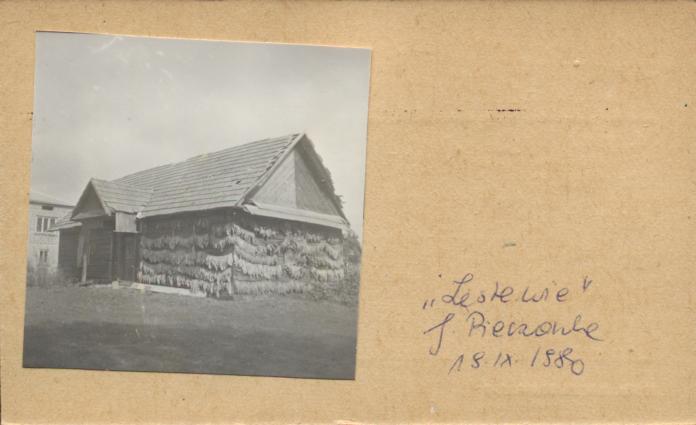 „Zestawie"
J Pieczonka
19.IX.1980